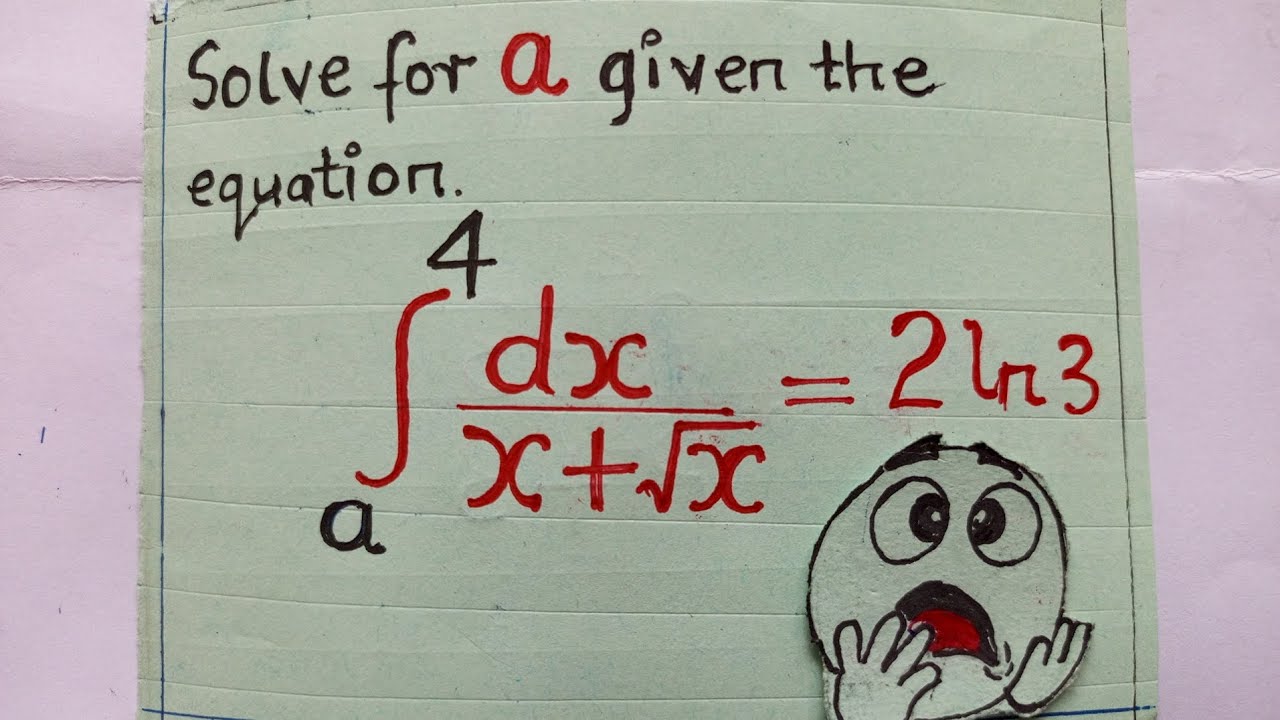 Solve for a given the
equation.
∫ₐ⁴ dx/(x+√x) = 2ln3